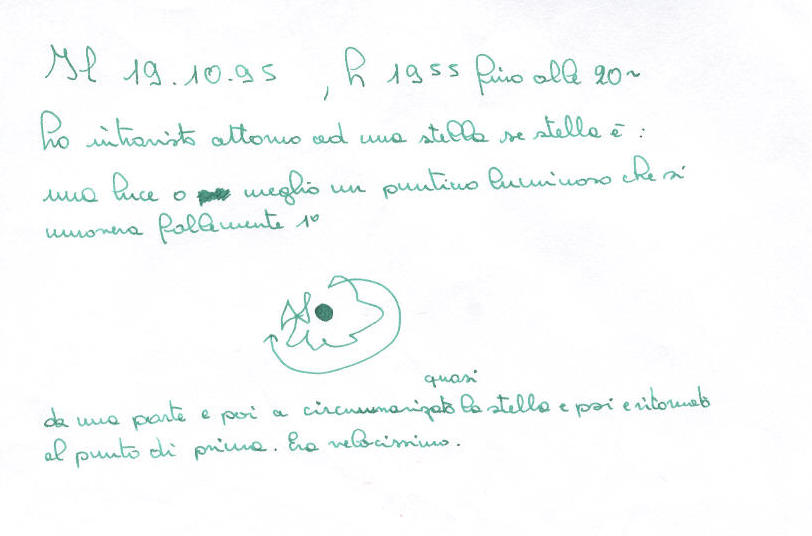 Il 19.10.95 , h 1955 fino alle 20~
ho intravisto attorno ad una stella se stella è :
una luce o meglio un puntino luminoso che si
muoveva follemente 1°
quasi
da una parte e poi a circumnavigato la stella e poi e ritornato
al punto di prima. Era velocissimo.